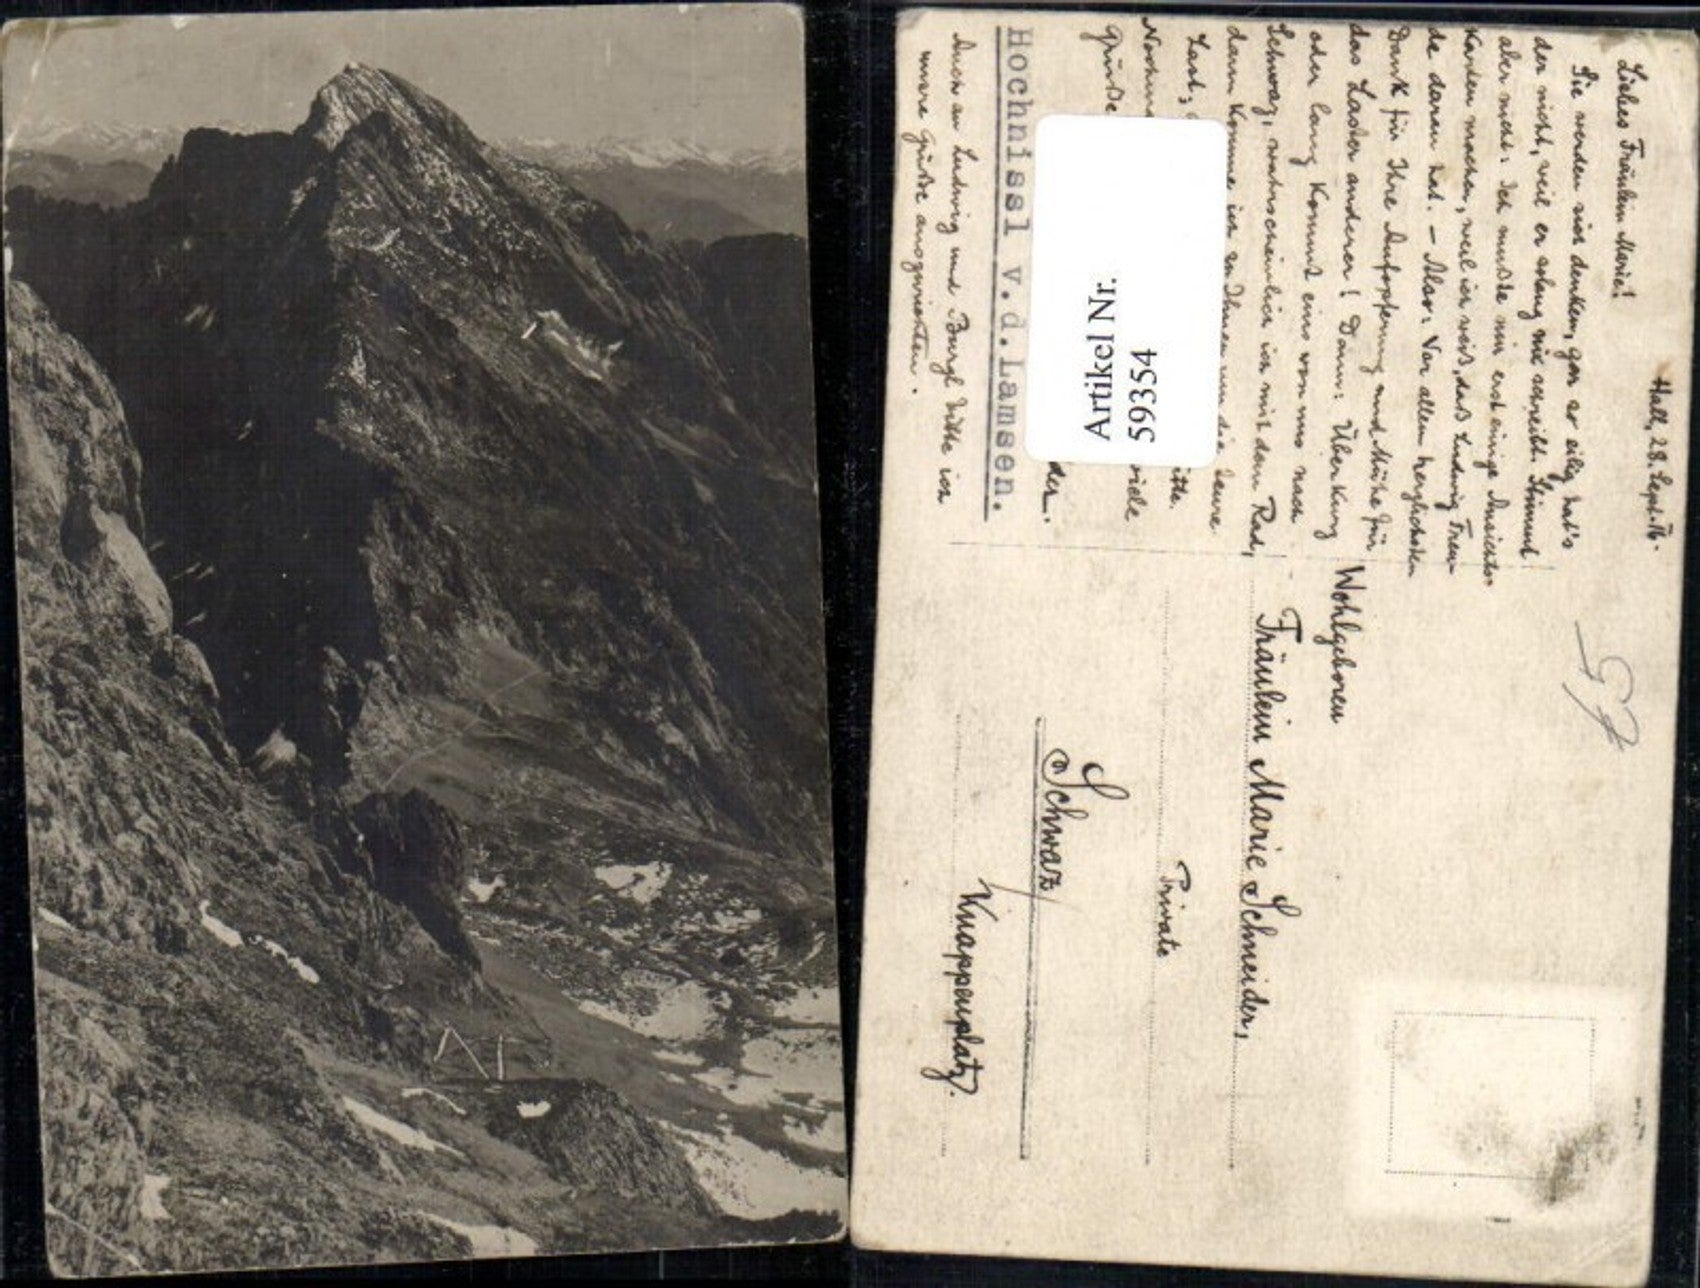 Hall, 28. Sept. 16.
Liebes Fräulein Marie!
Sie werden sich denken, gar so eilig hat's
der nicht, weil er solang nie schreibt. Stimmt
aber nicht. Ich mußte mir erst einige Ansichts
Karten machen, weil ich weiß, daß Ludwig Freu-
de daran hat. – Also: Vor allem herzlichsten
Dank für Ihre Aufopferung und Mühe für
das Laster anderer! Dann: Über Kurz
oder lang Kommt eins von uns nach
Schwaz, wahrscheinlich ich mit dem Rad,
dann Komme ich zu Ihnen um die teure
Last,
viele
Grüße
Hochnissl v.d.Lamsen.
Auch an Ludwig und Burgl bitte ich
unsere Grüße auszurichten.
Artikel Nr.
59354
Wohlgeboren
Fräulein Marie Schneider,
Private
Schwaz
Knappenplatz.